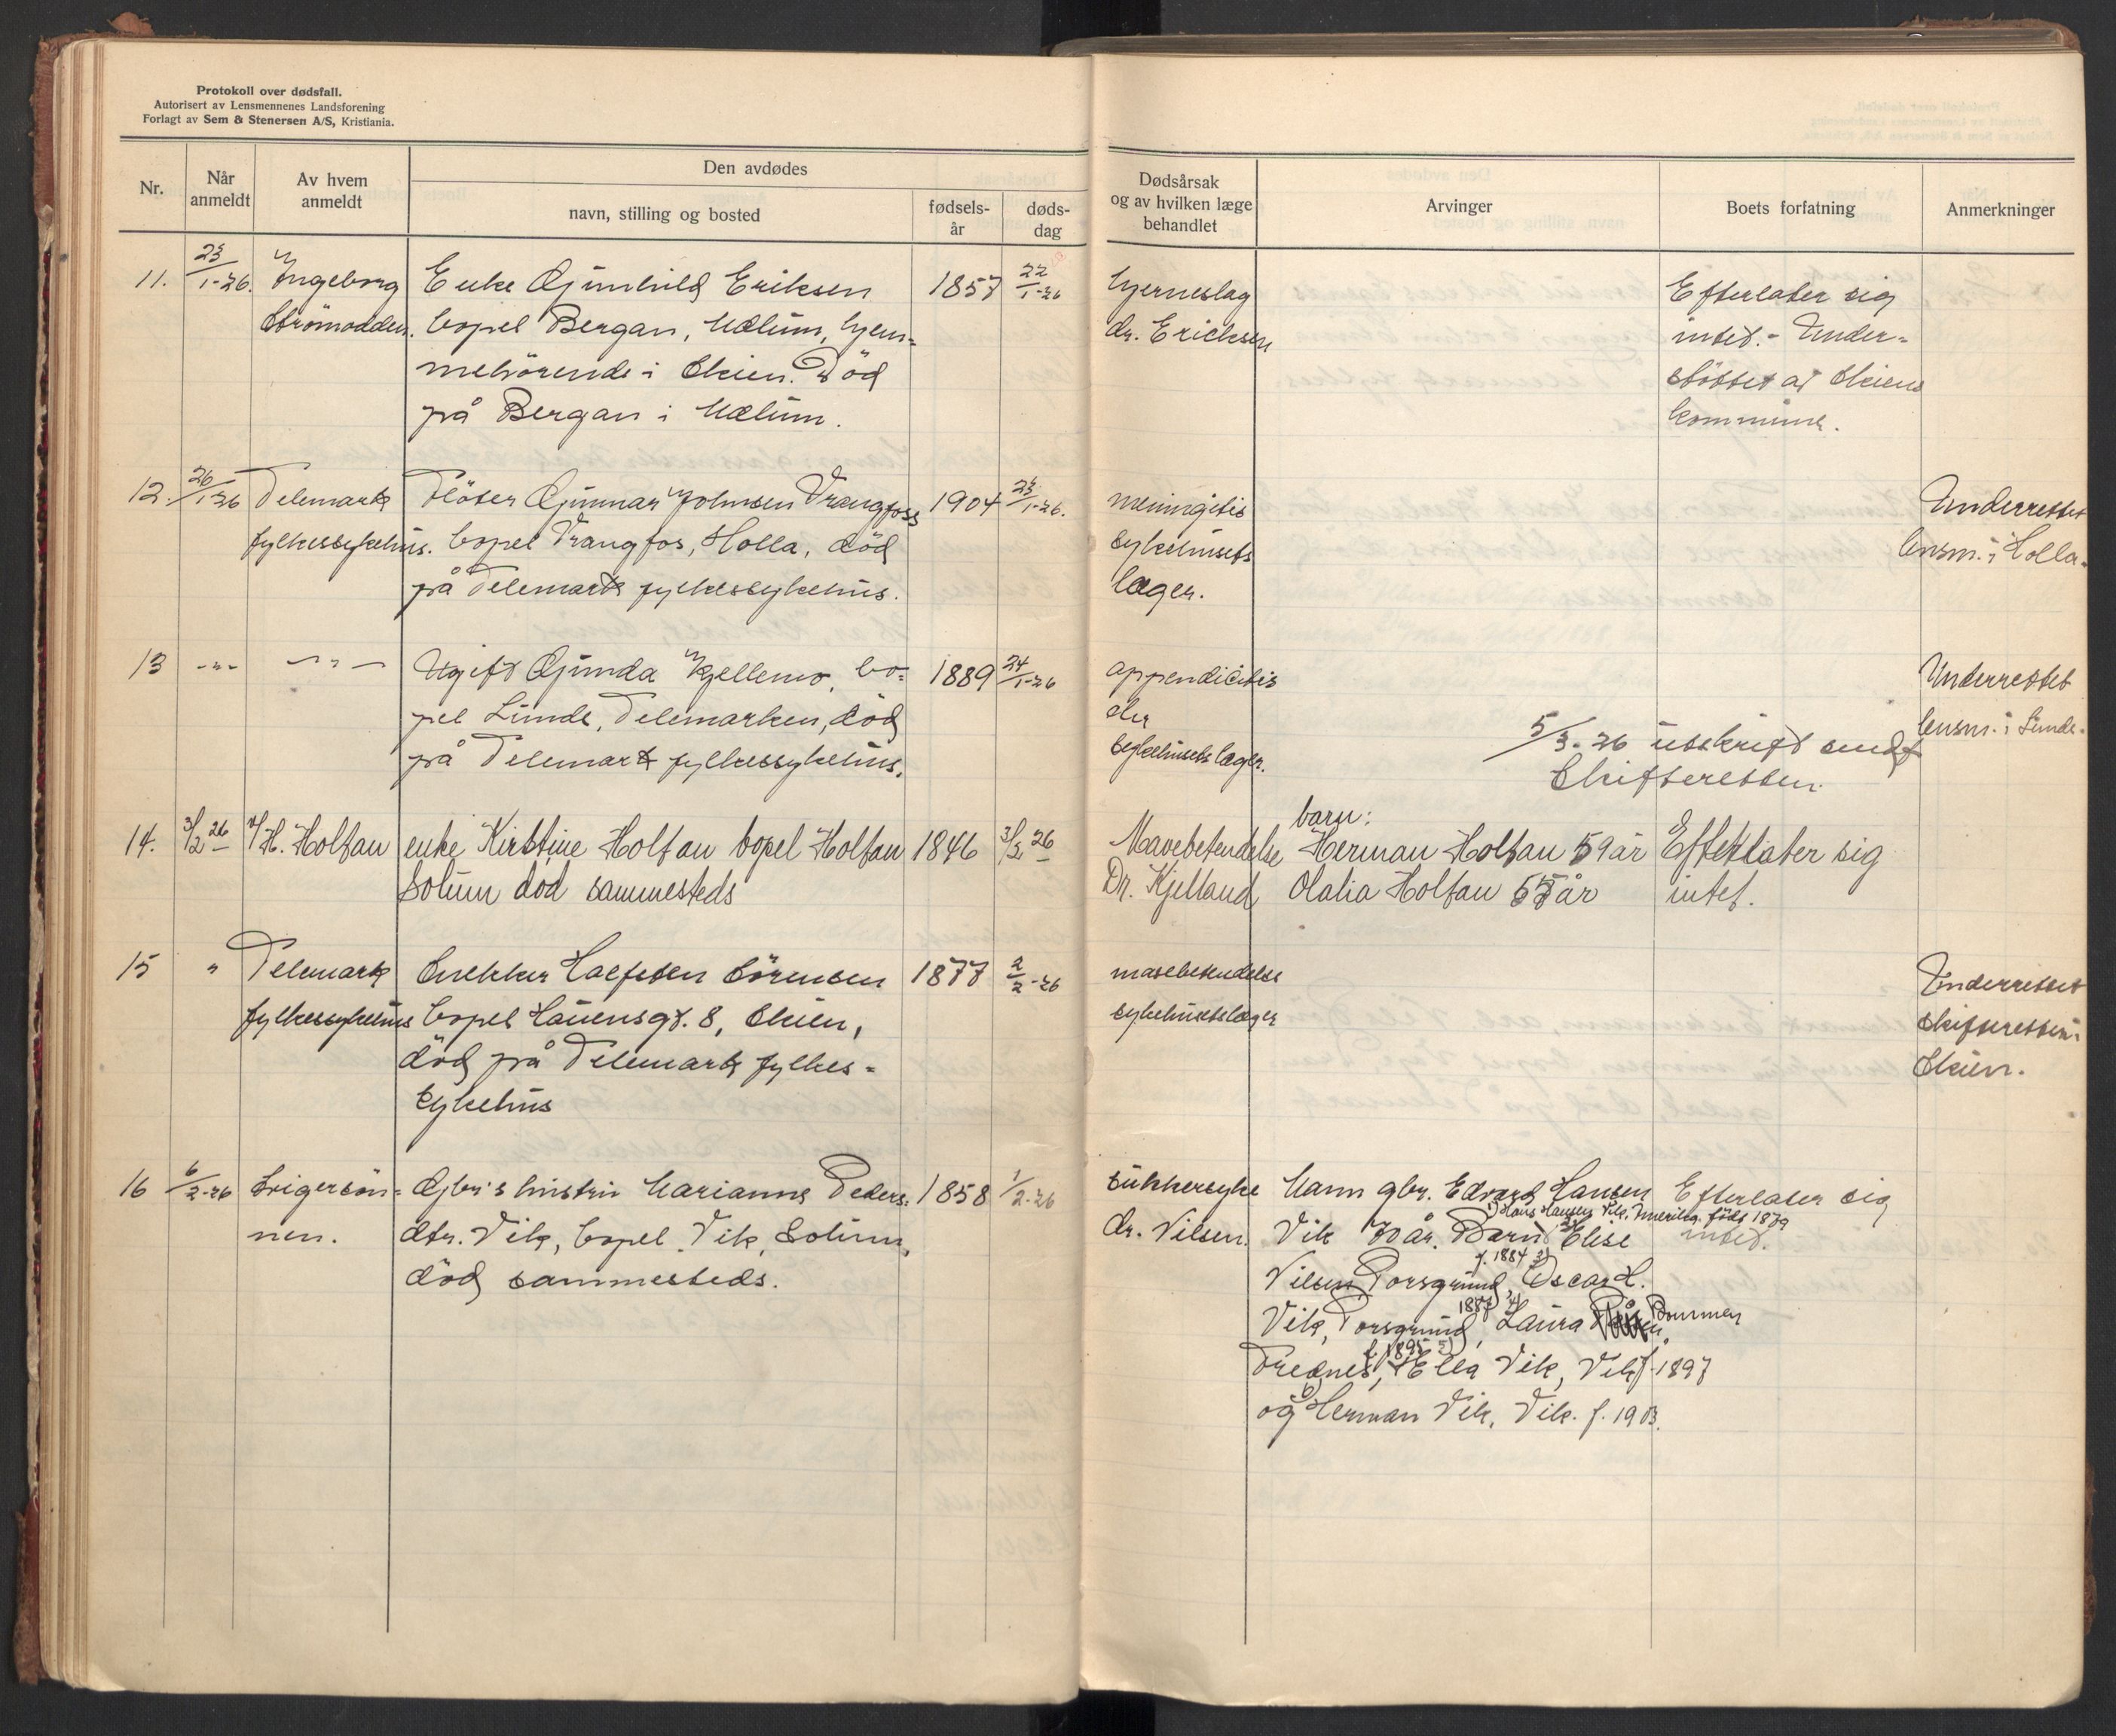 Protokoll over dødsfall.
Autorisert av Lensmennenes Landsforening
Forlagt av Sem & Stenersen A/S, Kristiania.
Nr.
Når anmeldt
Av hvem anmeldt
Den avdødes
navn, stilling og bosted
fødselsår
dødsdag
Dødsårsak og av hvilken læge behandlet
Arvinger
Boets forfatning
Anmerkninger
11. 23/1-26. Ingeborg Enke Gunhild Eriksen 1857 22/1-26 hjerneslag Efterlater sig
Strömodden. bopel Bergan, Mælum, hjem- dr. Ericksen intet. - Under-
mehörende i Skien. Död støttet av Skiens
på Bergan i Mælum. kommune.
12. 26/1-26 Telemark Flöter Gunnar Johnsen Vrangfoss 1904 23/1-26. meningitis Underrettet
fylkessykehus. bopel Vrangfos, Holla, död sykehusets lensm. i Holla.
på Telemark fylkessykehus. læger.
13 -"- -"- Ugift Gunda Kjellemo, bo- 1889 24/1-26 appendicitis Underrettet
pel Lunde, Telemarken, död lensm. i Lunde.
på Telemark fylkessykehus. sykehusets læger. 5/3-26 utskrift sendt
Skifteretten.
barn:
14. 3/2 26 H. Holtan enke Kirstine Holtan bopel Holtan 1846 3/2 26 Mavebetendelse Herman Holtan 59 år Efterlater sig
Solum död sammesteds Dr. Kjelland Olalia Holtan år intet.
15 " Telemark Snekker Sörensen 1877 2/2-26 mavebetendelse Underrettet
fylkessykehus bopel Lauensgt. 8, Skien, sykehusets læger skifteretten i
död på Telemark fylkes- Skien.
sykehus
16 6/2-26 Svigersön- Gbr's hustru Marianne Peders- 1858 1/2-26 sukkersyke Mann gbr. Edvard Hansen Efterlater sig
1) Hans Hansen Vik, Amerika, födt 1879
nen. dtr. Vik, bopel Vik, Solum, dr. Nilsen. Vik 70 år. Barn 2) Elise intet.
f. 1884 3)
död sammesteds. Nilsen, Porsgrund, Oscar H.
1887 4)
Vik, Porsgrund, Laura Dommen
f. 1895 5)
Frednes, Ella Vik, Vik f. 1897
6)
og Herman Vik, Vik. f. 1903.